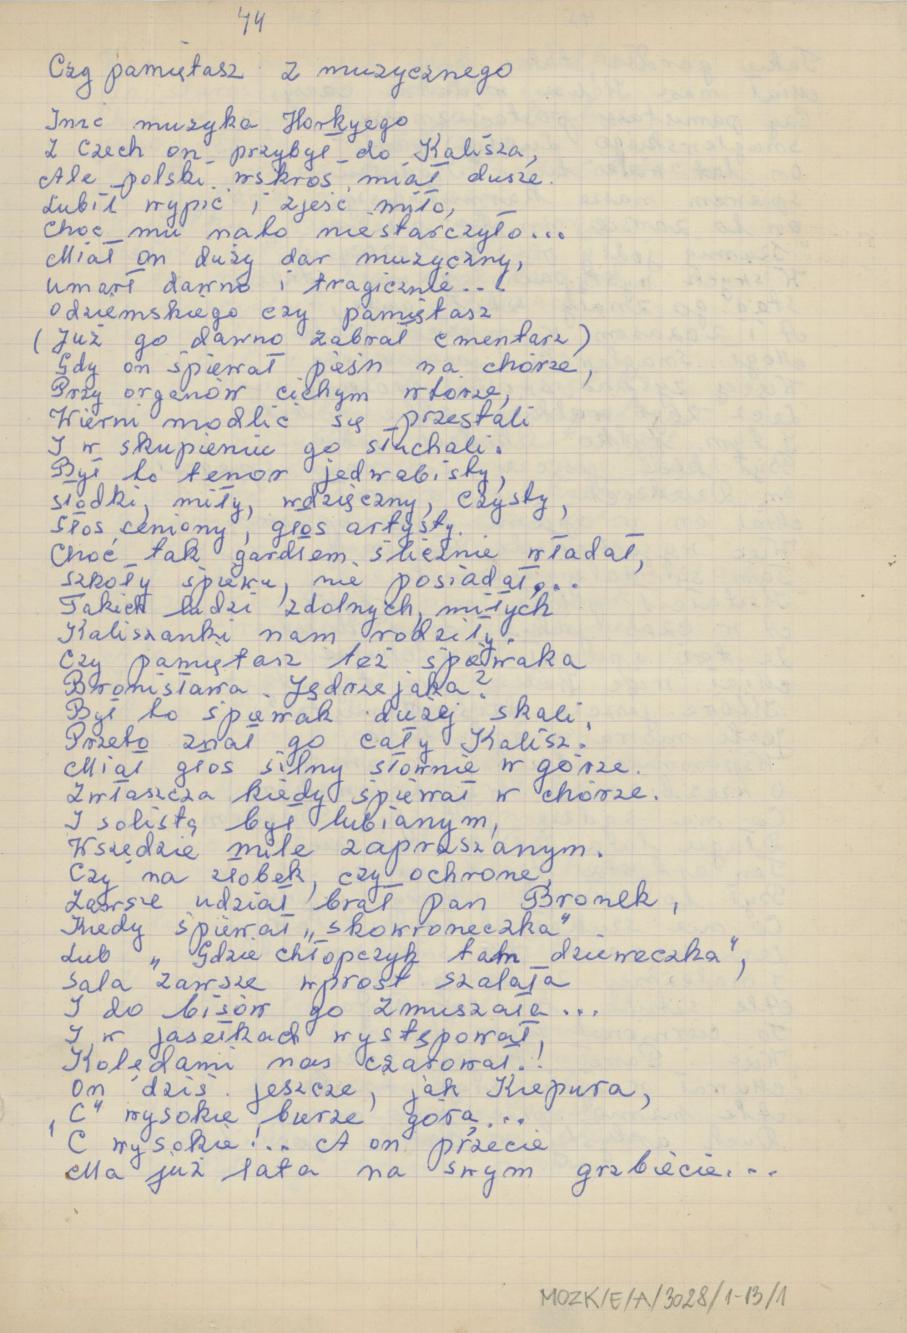 44
Czy pamiętasz z muzycznego
Imć muzyka Horkyego
Z Czech on przybył do Kalisza,
Ale polski wskroś miał dusze.
Lubił wypić i zjeść miło,
Choć mu nato niestarczyło...
Miał on duży dar muzyczny,
umarł dawno i tragicznie...
Odziemskiego czy pamiętasz
(Już go dawno zabrał cmentarz)
Gdy on śpiewał pieśń na chórze,
Przy organów cichym wtórze,
Wierni modlić się przestali
I w skupieniu go słuchali.
Był to tenor jedwabisty,
słodki, miły, wdzięczny, czysty,
Głos ceniony, głos artysty.
Choć tak gardłem ślicznie władał,
szkoły śpiewu, nie posiadał...
Takich ludzi zdolnych, miłych
Kaliszanki nam rodziły.
Czy pamiętasz też śpiewaka
Bronisława Jędrzejaka?
Był to śpiewak dużej skali,
Przeto znał go cały Kalisz!
Miał głos silny słownie w górze.
Zwłaszcza kiedy śpiewał w chórze.
I solistą był lubianym,
Wszędzie mile zapraszanym.
Czy na żłobek, czy ochronę,
Zawsze udział brał pan Bronek,
Kiedy śpiewał „skowroneczka"
Lub „Gdzie chłopczyk tam dzieweczka",
Sala zawsze wprost szalała
I do bisów go zmuszała...
I w jasełkach występował,
Kolędami nas czarował!!
On dziś jeszcze, jak Kiepura,
„C" wysokie bierze górą...
C wysokie!... A on przecie
Ma już lata na swym grzbiecie...
MOZK/E/A/3028/1-13/1